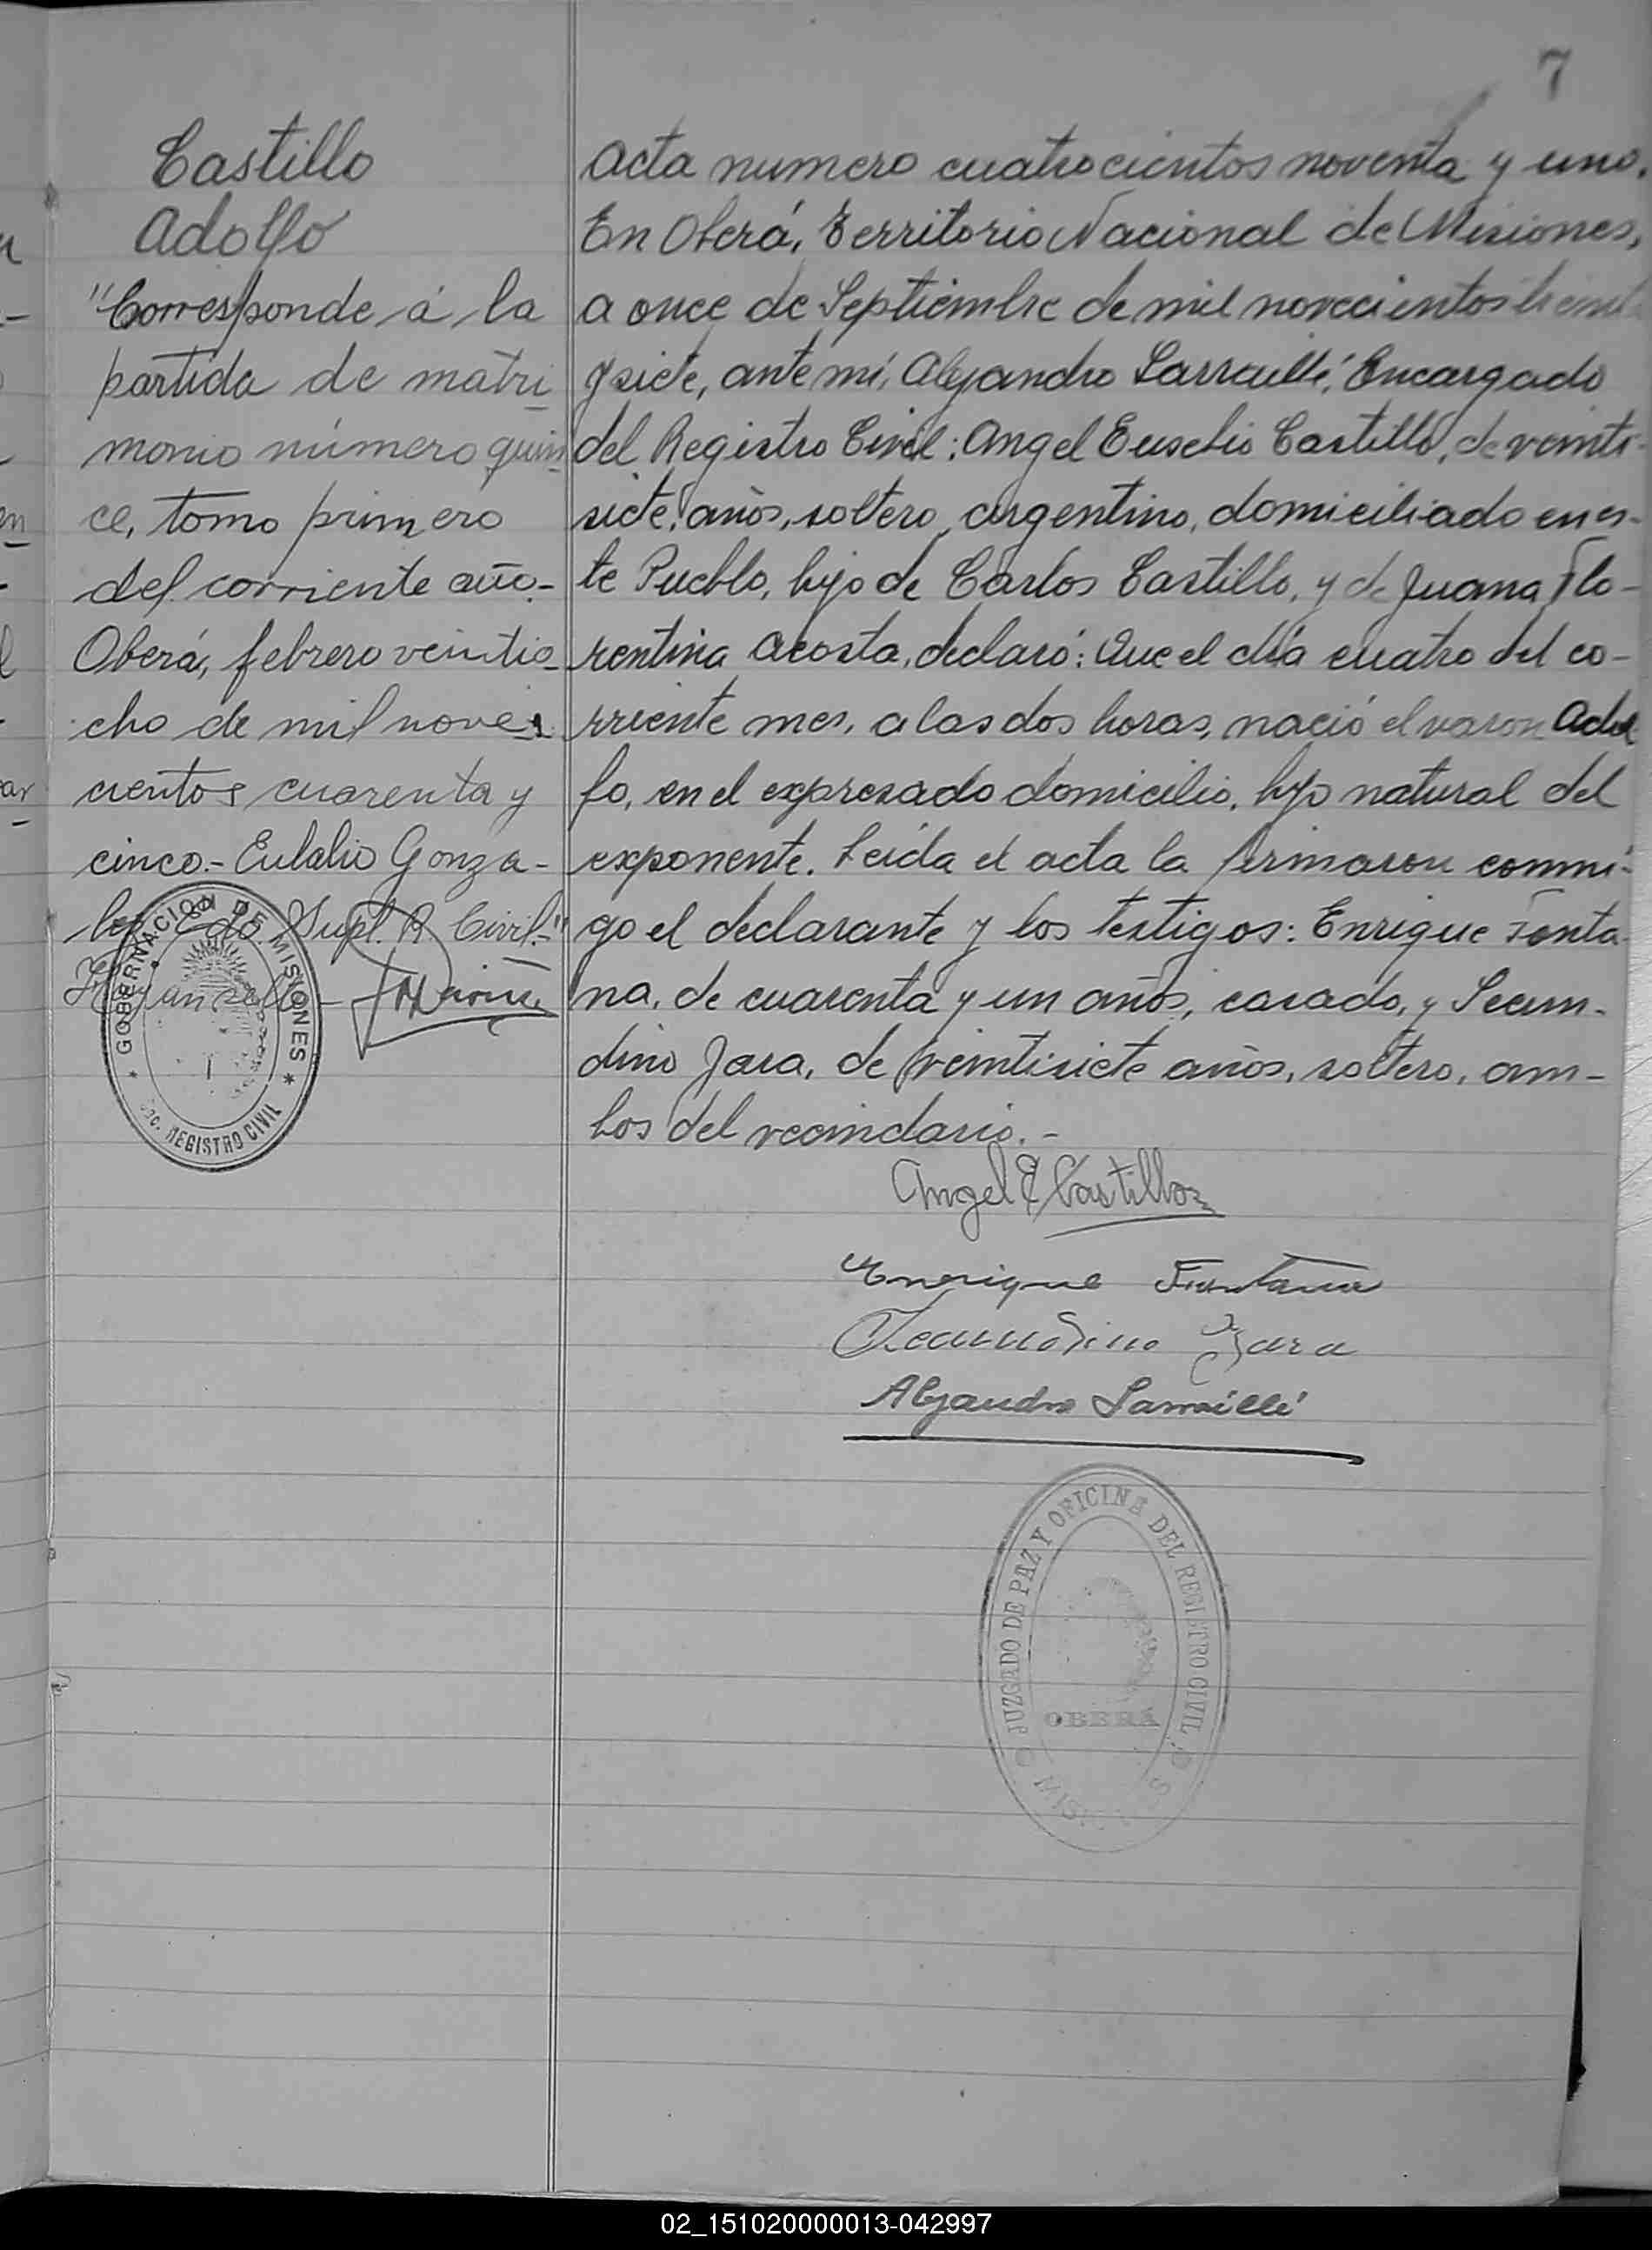 7
Castillo
Adolfo
"Corresponde á la
partida de matri
monio número quin
ce, tomo primero
del corriente año.-
Oberá, febrero veintio
cho de mil nove
cientos cuarenta y
cinco.- Eulalio Gonza-
lez Edo. Supl. R. Civil.-"
Hay un sello
GOBERNACION DE MISIONES
REGISTRO CIVIL
Acta numero cuatrocientos noventa y uno.
En Oberá, Territorio Nacional de Misiones,
a once de Septiembre de mil novecientos treinta
y siete, ante mí, Alejandro Larraillé, Encargado
del Registro Civil: Angel Eusebio Castillo, de veinti-
siete años, soltero, argentino, domiciliado en es-
te Pueblo, hijo de Carlos Castillo, y de Juana Flo-
rentina Acosta, declaró: Que el día cuatro del co-
rriente mes, a las dos horas, nació el varon Adol
fo, en el expresado domicilio, hijo natural del
exponente. Leída el acta la firmaron conmi-
go el declarante y los testigos: Enrique Fonta-
na, de cuarenta y un años, casado, y Secun-
dino Jara, de veintisiete años, soltero, am-
bos del vecindario.-
Angel E Castillo
Enrique Fontana
Secundino Jara
Alejandro Larraillé
JUZGADO DE PAZ Y OFICINA DEL REGISTRO CIVIL
OBERA
02_151020000013-042997